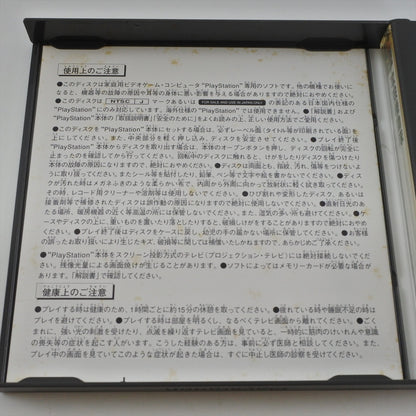 使用上のご注意
●このディスクは家庭用ビデオゲーム・コンピュータ"PlayStation"専用のソフトです。他の機種でお使いに
なると、機器等の故障の原因や耳等の身体の悪い影響を与える場合がありますので絶対におやめください。
●このディスクは NTSC J マークあるいは FOR SALE AND USE IN JAPAN ONLY の表記のある日本国内仕様の
"PlayStation"にのみ対応しています。海外仕様の"PlayStation"では使用できません。●「解説書」および
"PlayStation"本体の「取扱説明書」「安全のために」をよくお読みの上、正しい使用方法でご愛用ください。
●このディスクを"PlayStation"本体にセットする場合は、必ずレーベル面(タイトル等が印刷されている面)を
上にしてください。また、中央部分を軽く押し込み、ディスクを安定させてください。●プレイ終了後
"PlayStation"本体からディスクを取り出す場合は、本体のオープンボタンを押し、ディスクの回転が完全に
止まったのを確認してから行ってください。回転中のディスクに触れると、けがをしたりディスクを傷つけたり
本体の故障の原因になりますので、絶対におやめください。●ディスクは両面とも、指紋、汚れ、傷等をつけないよ
うに取り扱ってください。またシール等を貼付したり、鉛筆、ペン等で文字や絵を書かないでください。●ディス
クが汚れた時はメガネふきのような柔らかい布で、内周から外周に向かって放射状に軽く拭き取ってください。
その時、レコード用クリーナーや溶剤等は使わないでください。●ひび割れや変形したディスク、あるいは
接着剤等で補修されたディスクは誤作動の原因になりますので絶対に使用しないでください。●直射日光のあ
たる場所、暖房機器の近く等高温の所には保管しないでください。また、湿気の多い所も避けてください。●ケ
ースやディスクの上に、重いものを置いたり落としたりすると、破損しけがをすることがありますので絶対におやめ
ください。●プレイ終了後はディスクをケースに戻し、幼児の手の届かない場所に保管してください。●お客様
の誤ったお取り扱いにより生じたキズ、破損等に関しては補償いたしかねますので、あらかじめご了承ください。
●"PlayStation"本体をスクリーン投影方式のテレビ(プロジェクション・テレビ)には絶対接続しないでくだ
さい。残像光量による画面焼けが生じることがあります。●ソフトによってはメモリーカードが必要な場合が
あります。「解説書」で確認してください。
健康上のご注意
●プレイする時は健康のため、1時間ごとに約15分の休憩を取ってください。●疲れている時や睡眠不足の時は
プレイを避けてください。●プレイする時は部屋を明るくし、なるべくテレビ画面から離れてください。●ごくま
れに、強い光の刺激を受けたり、点滅を繰り返すテレビ画面を見ていると、一時的に筋肉のけいれんや意識
の喪失等の症状を起こす人がいます。こうした経験のある方は、事前に必ず医師と相談してください。また、
プレイ中の画面を見ていてこのような症状が起きた場合は、すぐに中止し医師の診察を受けてください。